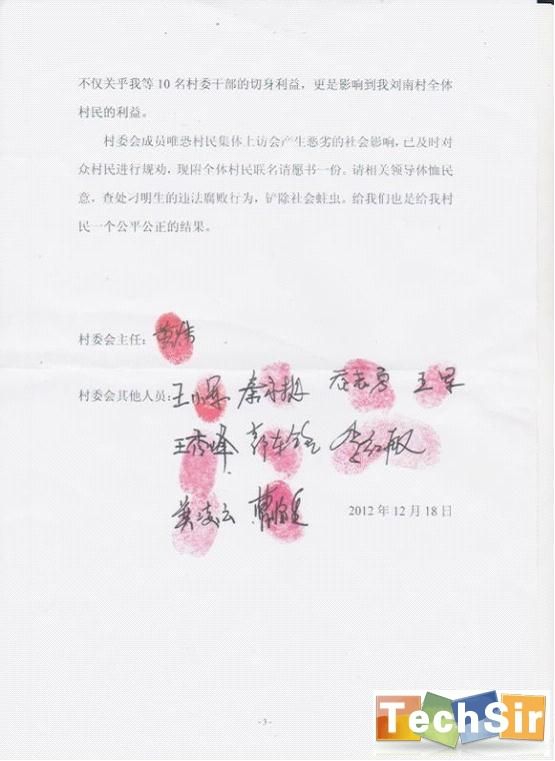 不仅关乎我等10名村委干部的切身利益，更是影响到我刘南村全体
村民的利益。
村委会成员唯恐村民集体上访会产生恶劣的社会影响，已及时对
众村民进行规劝，现附全体村民联名请愿书一份。请相关领导体恤民
意，查处刁明生的违法腐败行为，铲除社会蛀虫。给我们也是给我村
民一个公平公正的结果。
村委会主任：
村委会其他人员：王小军
2012年12月18日
-3-
TechSir